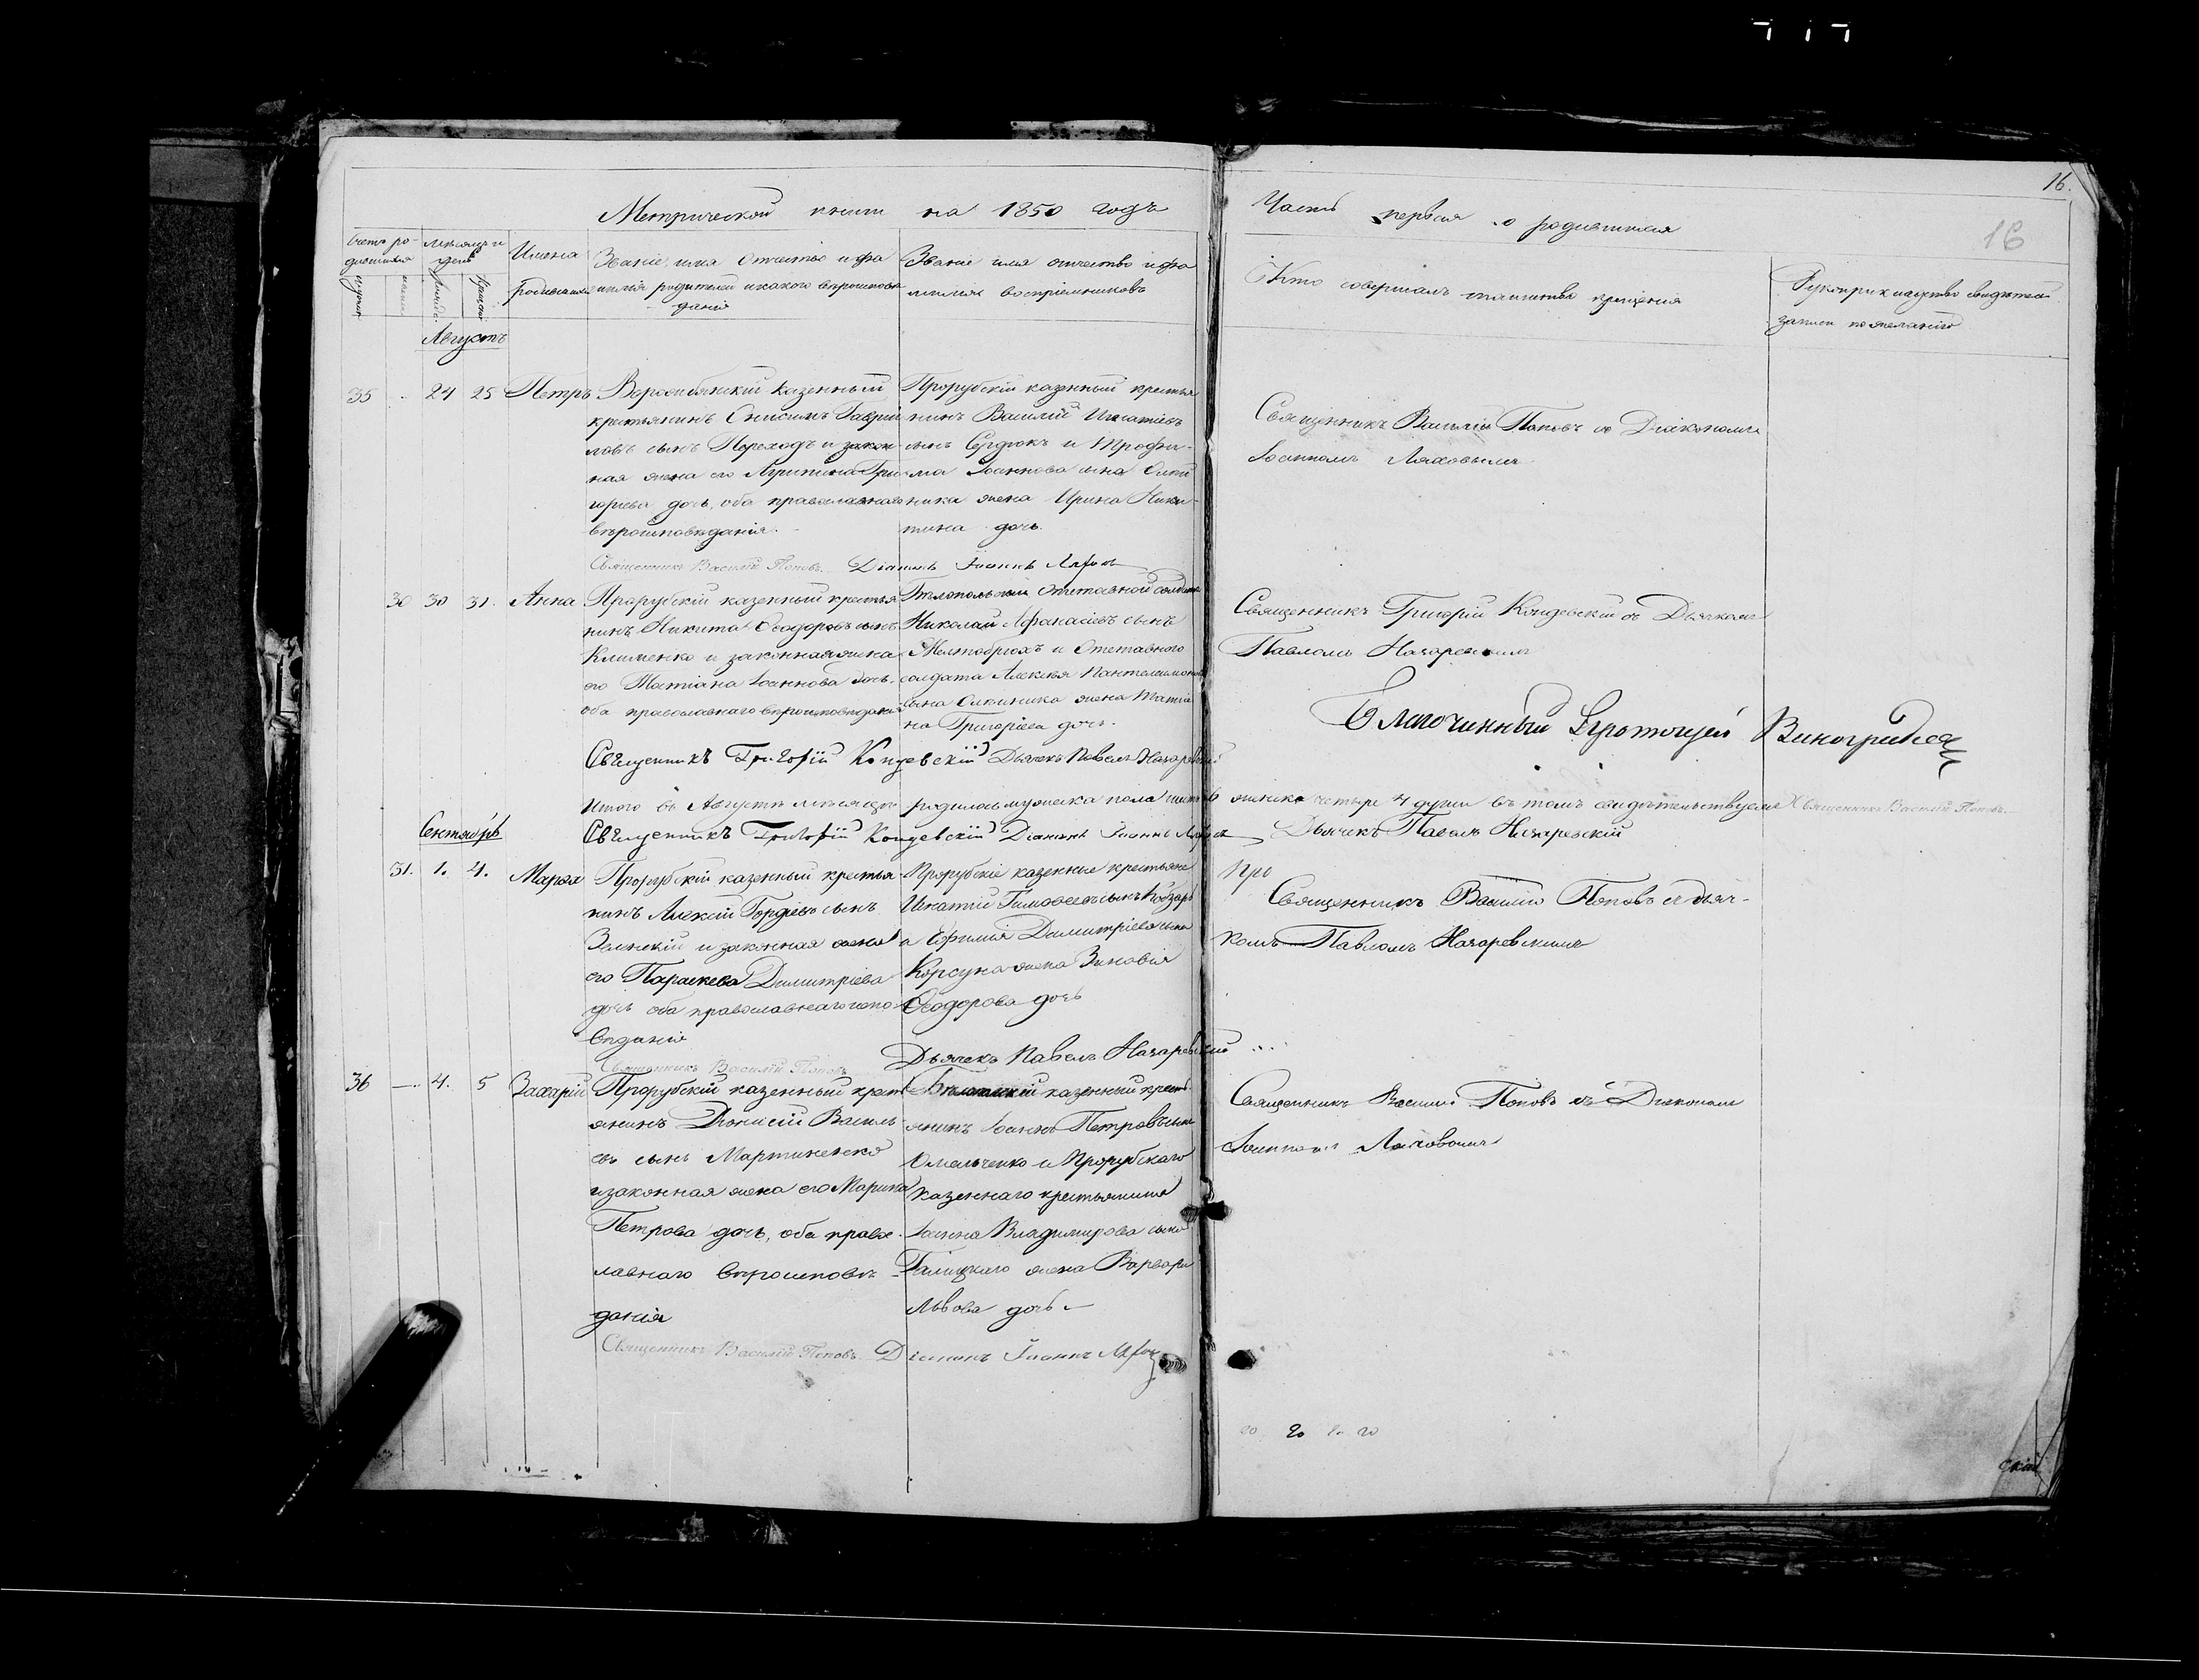 16.
16
Метрической книги на 1850 годъ
Часть первая о родившихся
Счетъ родившихся
Мѣсяцъ и день
Имена родившихся
Званіе, имя отчество и фамилія родителей и какого вѣроисповѣданія
Званіе имя отчество и фамилія воспріемниковъ
Кто совершалъ таинство крещенія
Рукоприкладство свидѣтелей записи по желанію
Августъ
35 24 25 Петръ
Ворожбянскій казенный
крестьянинъ Онисимъ Гаврiи
ловъ сынъ Переходъ и закон-
ная жена его Агрипина Гри
горіева дочь, оба православнаго
вѣроисповѣданія.
Прорубскій казенный крестья
нинъ Василій Игнатіевъ
сынъ Сердюкъ и Трофи-
ма Іоаннова сына Олей
ника жена Ирина Ники-
тина дочь.
Священникъ Василій Поповъ съ Діакономъ
Іоанномъ Ляховымъ
Священникъ Василій Поповъ. Діаконъ Іоаннъ Ляховъ
30 30 31. Анна
Прорубскій казенный крестья
нинъ Никита Ѳеодоровъ сынъ
Клименко и законная жена
его Татіана Іоаннова дочь.
оба православнаго вѣроисповѣданія
отставной солдатъ
Николай Афанасіевъ сынъ
Желтобрюхъ и Отставного
солдата Алексѣя Пантелеимонова
сына Олиника жена Татіа
на Григоріева дочь.
Священникъ Григорій Кондевскій съ Дьячкомъ
Павломъ Назаревскимъ
Благочинный Протоіерей
Священникъ Григорій Кондевскій Дьячекъ Павелъ Назаревскій
Итого въ Августѣ мѣсяцѣ родилось мужеска пола женска четыре 4 души въ томъ свидѣтельствуемъ Священникъ Василій Поповъ.
Священникъ Григорій Кондевскій Діаконъ Іоаннъ Ляховъ Дьячекъ Павелъ Назаревскій
Сентябрь
31. 1. 4. Марѳа
Прорубскій казенный крестья
нинъ Алексій Гордіевъ сынъ
Зленскій и законная жена
его Параскева Димитріева
дочь оба православнаго испо-
вѣданія
Прорубскіе казенные крестьяне
Игнатій Тимоѳеевъ сынъ Кобзарь
и Ефимія Димитріева сына
Корсуна жена Зиновія
Ѳеодорова дочь
Про
Священникъ Василій Поповъ съ дьяч-
комъ Павломъ Назаревскимъ
Священникъ Василій Поповъ Дьячекъ Павелъ Назаревскій
36 —. 4. 5 Захарій
Прорубскій казенный крест
янинъ Діонисій Василь-
евъ сынъ Мартиненко
и законная жена его Марина
Петрова дочь, оба право-
славнаго вѣроисповѣ-
данія
казенный крест
янинъ Іоаннъ Петровъ сынъ
Омельченко и Прорубскаго
казеннаго крестьянина
Іоанна Владимирова сына
Галицкаго жена Варвара
Львова дочь
Священникъ Василій Поповъ съ Діакономъ
Іоанномъ Ляховымъ
Священникъ Василій Поповъ Діаконъ Іоаннъ Ляховъ
20
скій